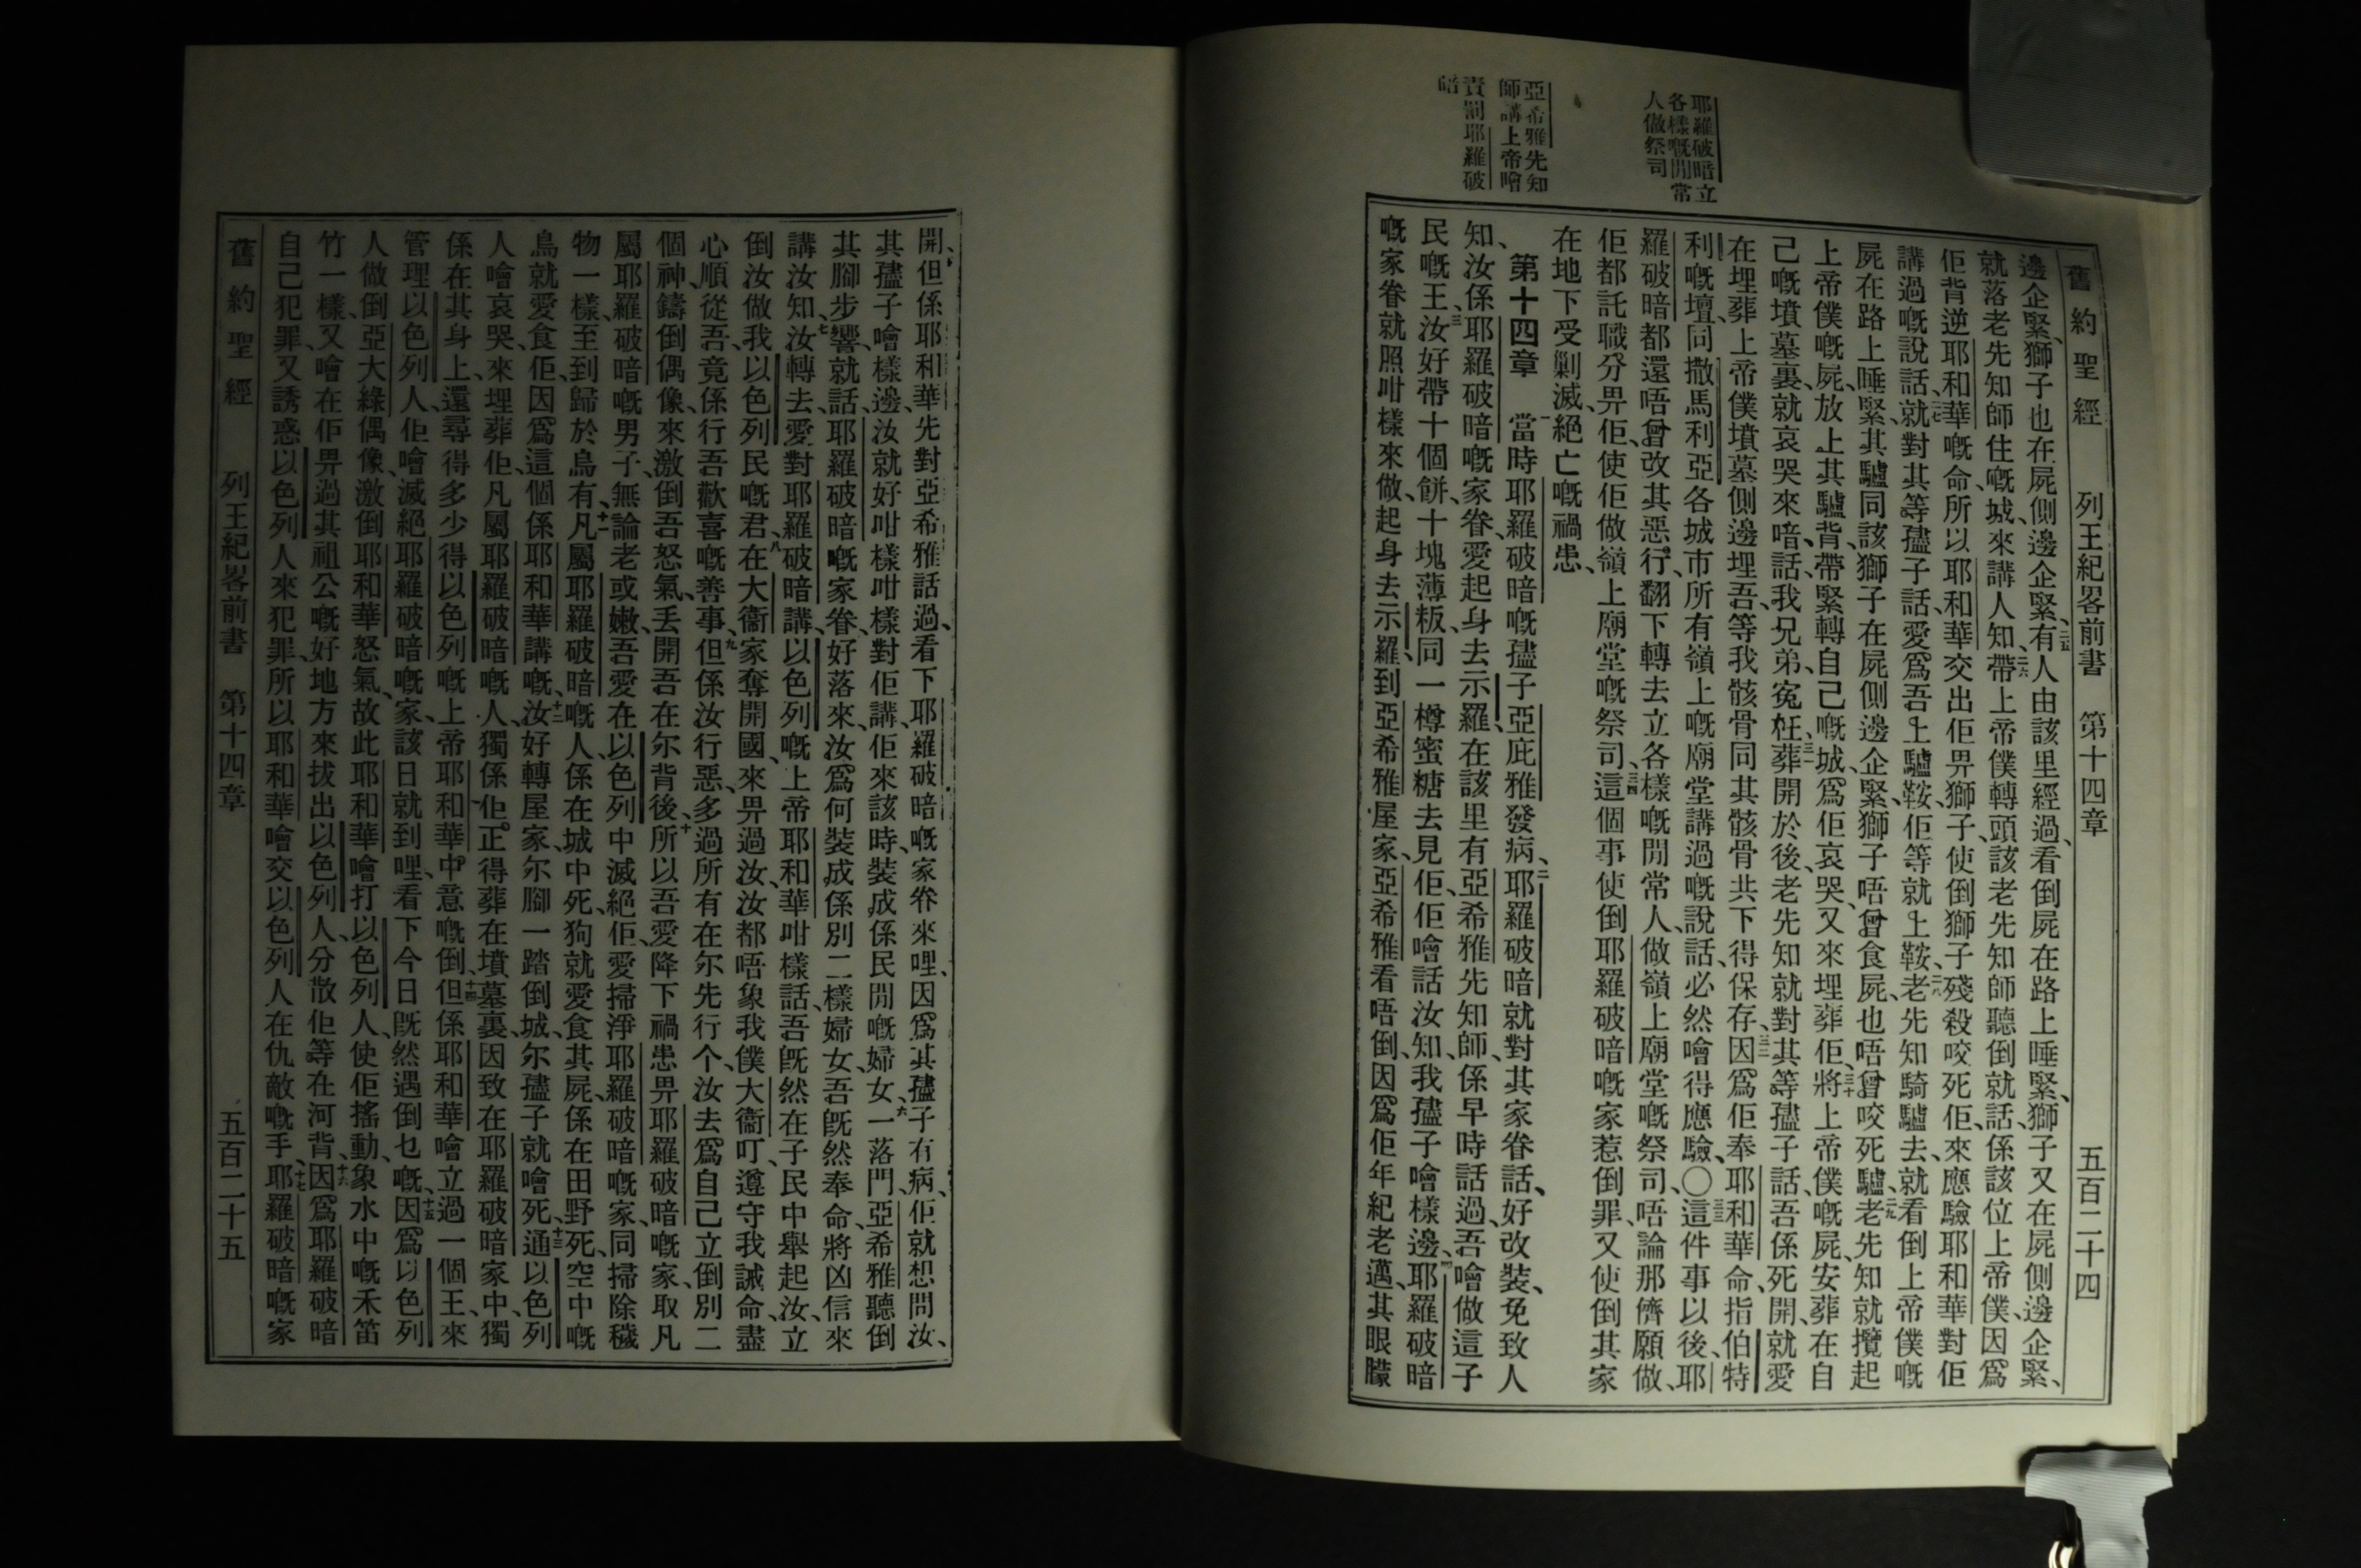 舊約聖經 列王紀畧前書 第十四章 五百二十四
耶羅破暗立
各樣嘅閒常
人做祭司
亞希雅先知
師講上帝噲
責罰耶羅破
暗
邊企緊、獅子也在屍側邊企緊、二五有人由該里經過、看倒屍在路上睡緊、獅子又在屍側邊企緊、
就落老先知師住嘅城、來講人知、二六帶上帝僕轉頭該老先知師聽倒就話、係該位上帝僕、因爲
佢背逆耶和華嘅命、所以耶和華交出佢畀獅子、使倒獅子殘殺咬死佢、來應驗耶和華對佢
講過嘅說話、二七就對其等孻子話、愛爲吾上驢鞍、佢等就上鞍、二八老先知騎驢去、就看倒上帝僕嘅
屍在路上睡緊、其驢同該獅子在屍側邊企緊、獅子唔曾食屍、也唔曾咬死驢、二九老先知就攬起
上帝僕嘅屍、放上其驢背、帶緊轉自己嘅城、爲佢哀哭、又來埋葬佢、三十將上帝僕嘅屍、安葬在自
己嘅墳墓裏、就哀哭來喑話、我兄弟冤枉、三一葬開於後、老先知就對其等孻子話、吾係死開、就愛
在埋葬上帝僕墳墓側邊埋吾、等我骸骨同其骸骨共下得保存、三二因爲佢奉耶和華命、指伯特
利嘅壇、同撒馬利亞各城市所有嶺上嘅廟堂講過嘅說話、必然噲得應驗、〇三三這件事以後、耶
羅破暗都還唔曾改其惡行、翻下轉去立各樣嘅閒常人、做嶺上廟堂嘅祭司、唔論那儕願做、
佢都託職分畀佢、使佢做嶺上廟堂嘅祭司、三四這個事使倒耶羅破暗嘅家惹倒罪、又使倒其家
在地下受剿滅、絕亡嘅禍患、
第十四章 一當時耶羅破暗嘅孻子亞庇雅發病、二耶羅破暗就對其家眷話、好改裝、免致人
知、汝係耶羅破暗嘅家眷、愛起身去示羅、在該里有亞希雅先知師、係早時話過、吾噲做這子
民嘅王、三汝好帶十個餅、十塊薄粄、同一樽蜜糖去見佢、佢噲話汝知、我孻子噲樣邊、四耶羅破暗
嘅家眷就照咁樣來做、起身去示羅、到亞希雅屋家、亞希雅看唔倒、因爲佢年紀老邁、其眼朦
開、五但係耶和華先對亞希雅話過、看下耶羅破暗嘅家眷來哩、因爲其孻子有病、佢就想問汝、
其孻子噲樣邊、汝就好咁樣咁樣對佢講、佢來該時、裝成係民間嘅婦女、六一落門、亞希雅聽倒
其腳步響、就話、耶羅破暗嘅家眷、好落來、汝爲何裝成係別二樣婦女、吾旣然奉命、將凶信來
講汝知、七汝轉去、愛對耶羅破暗講、以色列嘅上帝耶和華咁樣話、吾旣然在子民中舉起汝、立
倒汝做我以色列民嘅君、八在大衞家奪開國、來畀過汝、汝都唔象我僕大衞叮、遵守我誡命、盡
心順從吾、竟係行吾歡喜嘅善事、九但係汝行惡、多過所有在尔先行个、汝去爲自己立倒別二
個神、鑄倒偶像、來激倒吾怒氣、丟開吾在尔背後、十所以吾愛降下禍患畀耶羅破暗嘅家、取凡
屬耶羅破暗嘅男子、無論老或嫩、吾愛在以色列中滅絕佢、愛掃淨耶羅破暗嘅家、同掃除穢
物一樣、至到歸於烏有、十一凡屬耶羅破暗嘅人、係在城中死、狗就愛食其屍、係在田野死、空中嘅
鳥就愛食佢、因爲這個係耶和華講嘅、十二汝好轉屋家、尔腳一踏倒城、尔孻子就噲死、十三通以色列
人噲哀哭、來埋葬佢、凡屬耶羅破暗嘅人、獨係佢正得葬在墳墓裏、因致在耶羅破暗家中、獨
係在其身上、還尋得多少得以色列嘅上帝耶和華中意嘅倒、十四但係耶和華噲立過一個王、來
管理以色列人、佢噲滅絕耶羅破暗嘅家、該日就到哩、看下今日旣然遇倒乜嘅、十五因爲以色列
人做倒亞大綠偶像、激倒耶和華怒氣、故此耶和華噲打以色列人、使佢搖動、象水中嘅禾笛
竹一樣、又噲在佢畀過其祖公嘅好地方來拔出以色列人、分散佢等在河背、十六因爲耶羅破暗
自己犯罪、又誘惑以色列人來犯罪、所以耶和華噲交以色列人在仇敵嘅手、十七耶羅破暗嘅家
舊約聖經 列王紀畧前書 第十四章 五百二十五